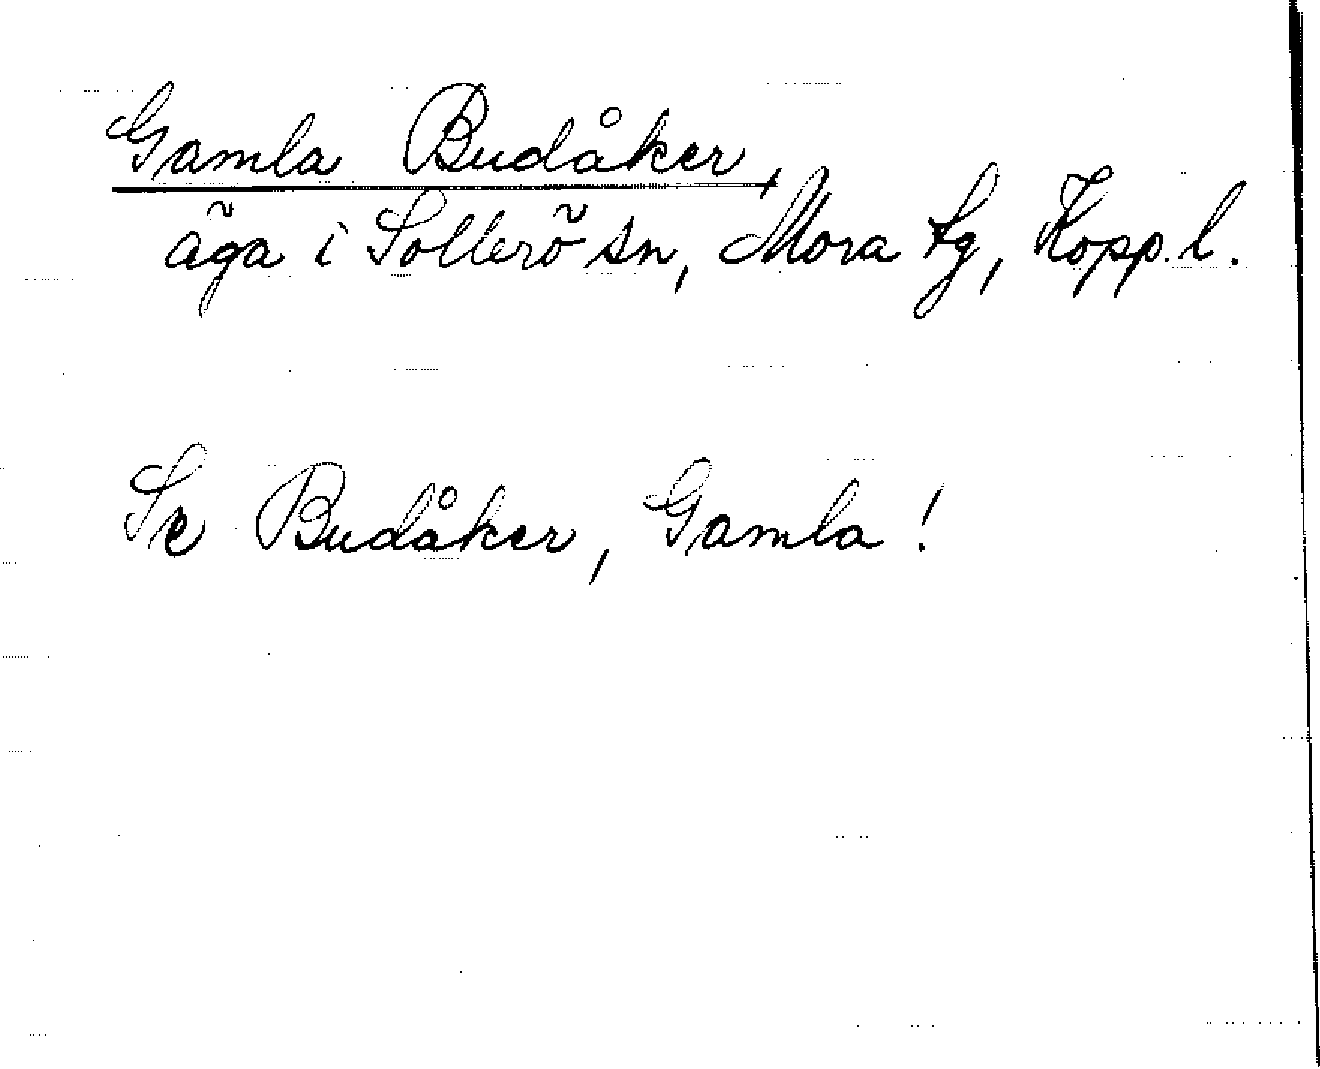 Gamla Budåker,
äga i Sollerö sn, Mora tg, Kopp. l.
Se Budåker, Gamla!